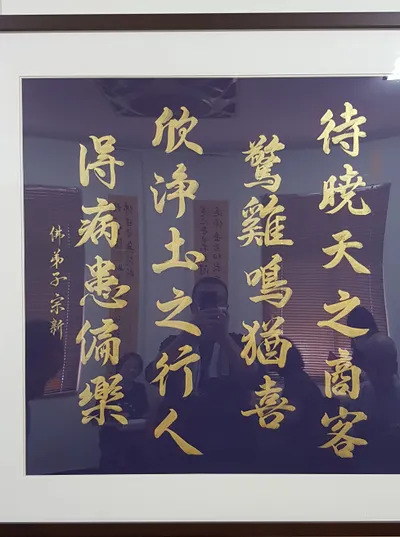 待曉天之商客
驚雞鳴猶喜
欣淨土之行人
得病患偏樂
佛弟子宗新